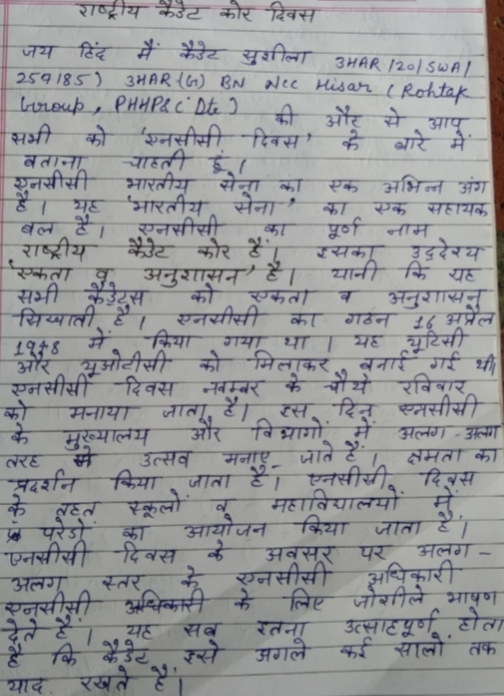 राष्ट्रीय कैडेट कोर दिवस
जय हिंद मैं कैडेट सुशीला 3HAR/20/SWA/
259185) 3HAR(G) BN NCC Hisar (Rohtak
Group, PHHP&C Dte) की और से आप
सभी को 'एनसीसी दिवस' के बारे में
बताना चाहती हूं।
एनसीसी भारतीय सेना का एक अभिन्न अंग
है। यह 'भारतीय सेना' का एक सहायक
बल है। एनसीसी का पूर्ण नाम
राष्ट्रीय कैडेट कोर है। इसका उद्देश्य
'एकता व अनुशासन' है। यानी कि यह
सभी कैडेट्स को एकता व अनुशासन
सिखाती है। एनसीसी का गठन 16 अप्रैल
1948 में किया गया था। यह यूटिसी
और यूओटीसी को मिलाकर बनाई गई थी।
एनसीसी दिवस नवम्बर के चौथे रविवार
को मनाया जाता है। इस दिन एनसीसी
के मुख्यालय और विभागों में अलग-अलग
तरह से उत्सव मनाए जाते हैं। क्षमता का
प्रदर्शन किया जाता है। एनसीसी दिवस
के तहत स्कूलों व महाविद्यालयों में
परेडों का आयोजन किया जाता है।
एनसीसी दिवस के अवसर पर अलग-
अलग स्तर के एनसीसी अधिकारी
एनसीसी अधिकारी के लिए जोशीले भाषण
देते हैं। यह सब इतना उत्साहपूर्ण होता
है कि कैडेट इसे अगले कई सालों तक
याद रखते हैं।